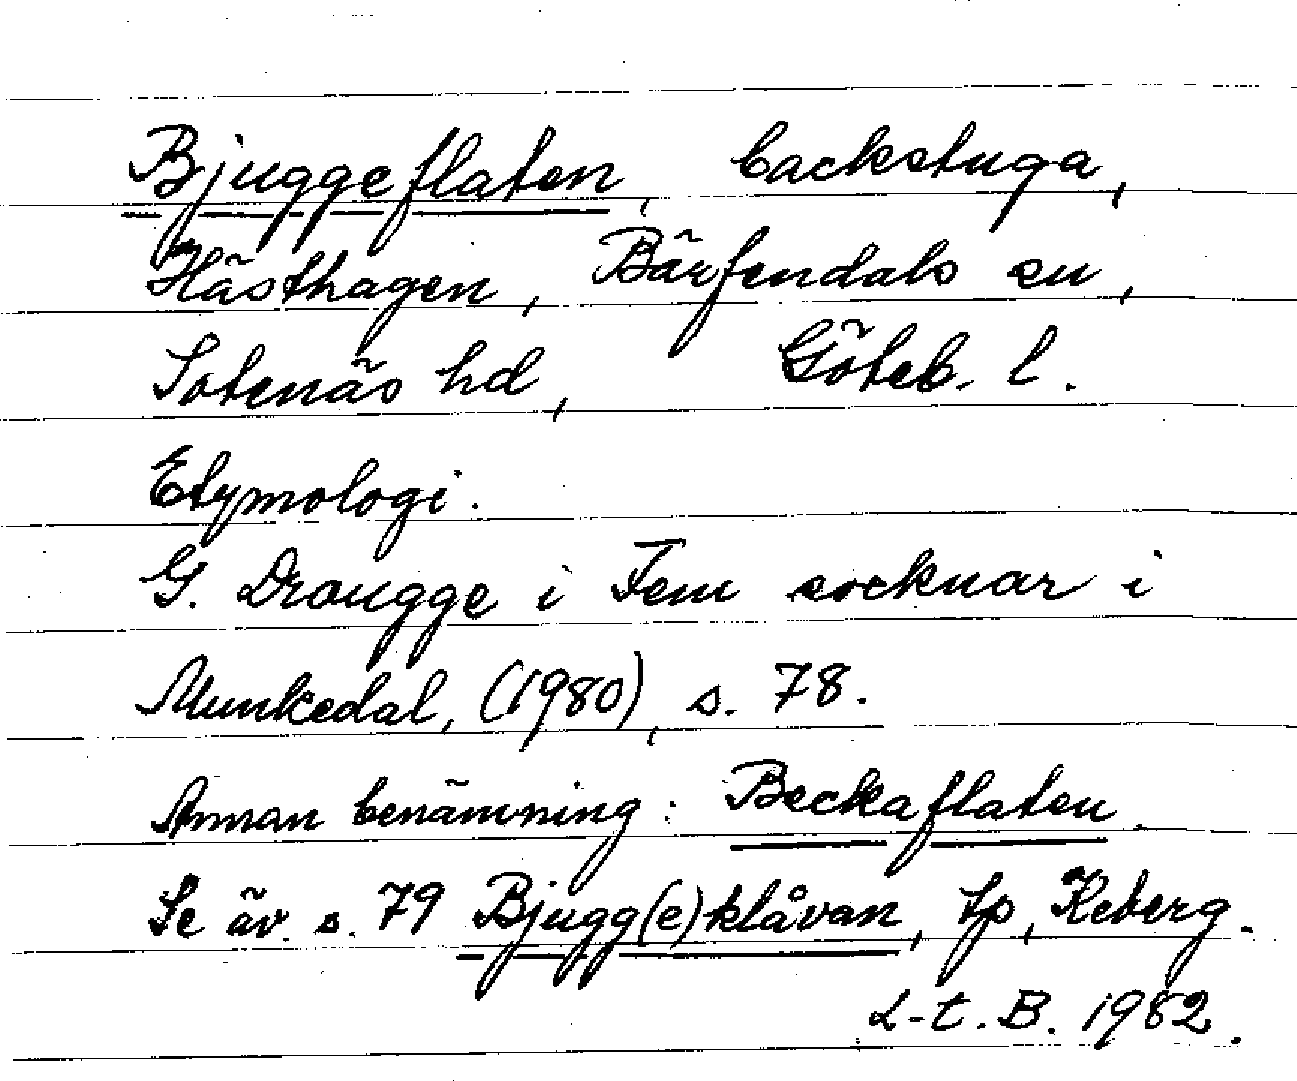 Bjuggeflaten, backstuga,
Hästhagen, Bärfendals sn,
Sotenäs hd, Göteb. l.
Etymologi.
G. Drougge i Fem socknar i
Munkedal, (1980), s. 78.
Annan benämning: Beckaflaten.
Se äv. s. 79 Bjugg(e)klåvan, tp, Keberg.
L-t. B. 1982.